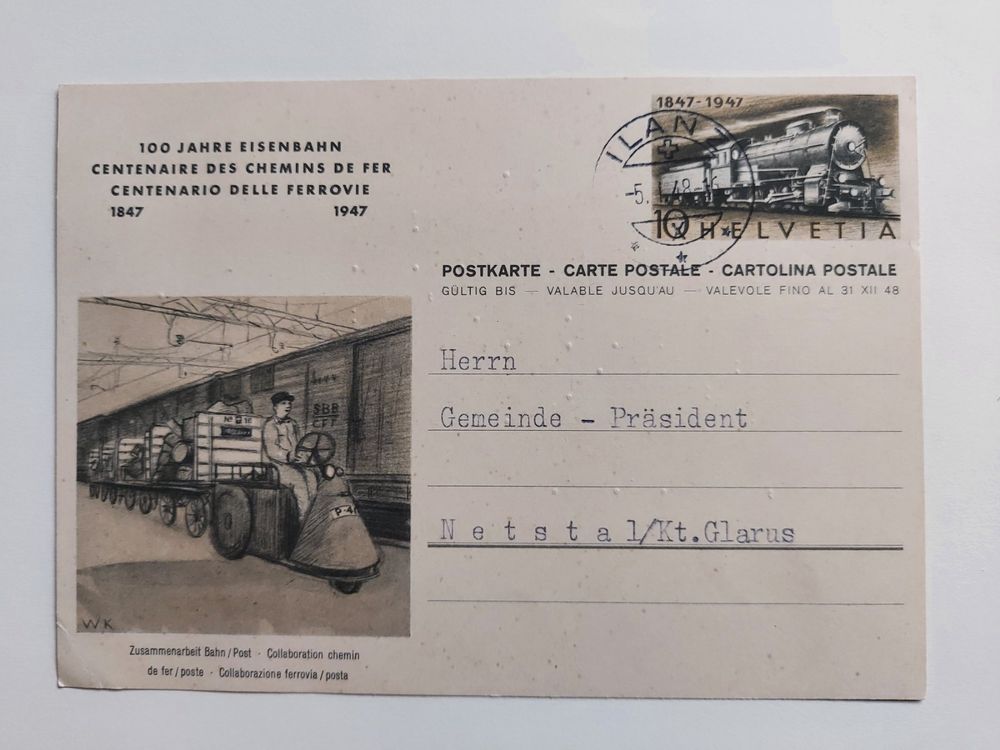 100 JAHRE EISENBAHN
CENTENAIRE DES CHEMINS DE FER
CENTENARIO DELLE FERROVIE
1847 1947
1847-1947
ILANZ
-5. 48-16
10 HELVETIA
POSTKARTE - CARTE POSTALE - CARTOLINA POSTALE
GÜLTIG BIS — VALABLE JUSQU'AU — VALEVOLE FINO AL 31 XII 48
Herrn
Gemeinde - Präsident
Netstal/Kt.Glarus
SBB
CFF
WK
Zusammenarbeit Bahn/Post · Collaboration chemin
de fer/poste · Collaborazione ferrovia/posta